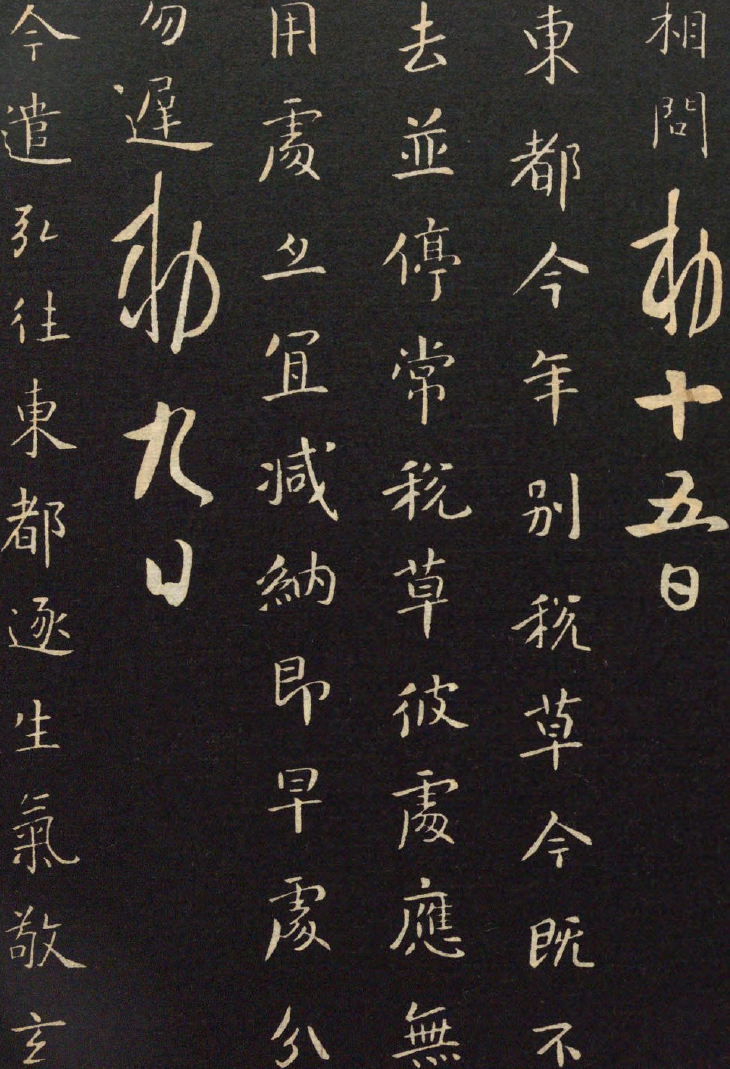 相問勅十五日
東都今年別税草今既不
去並停常税草彼處應無
用處亦宜减納即早處分
勿遲勅九日
今遣弘往東都逐生氣敬玄